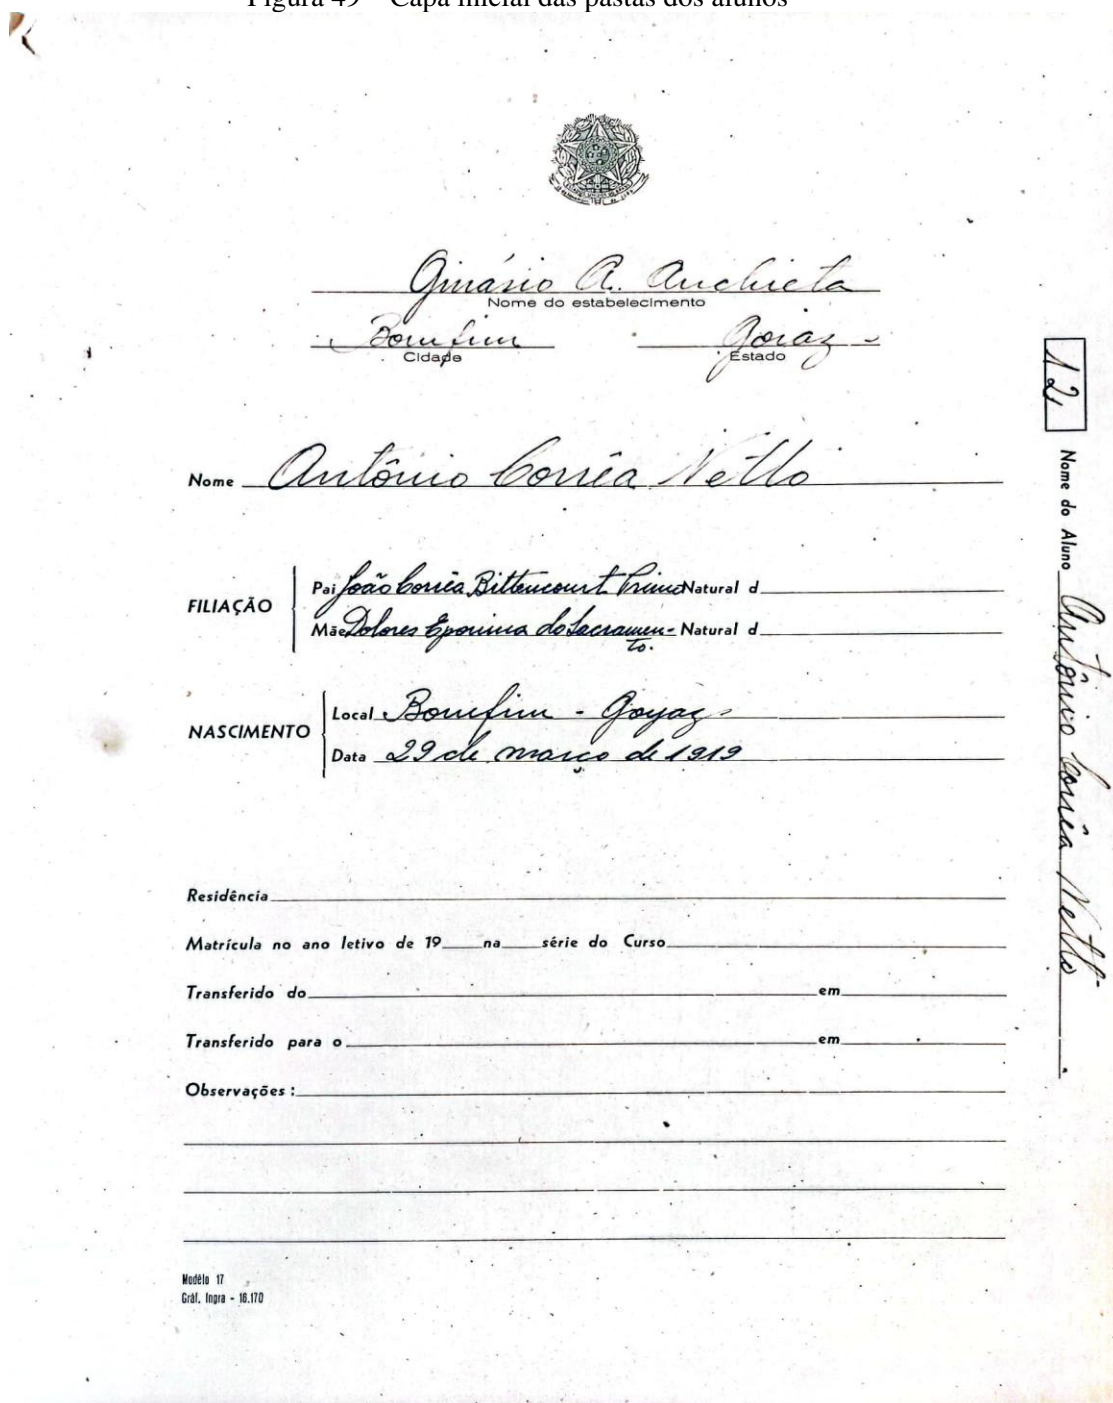 Figura 49 – Capa inicial das pastas dos alunos
Ginásio A. Anchieta
Nome do estabelecimento
Bomfim Goiaz
Cidade Estado
Nome Antônio Corrêa Netto
FILIAÇÃO
Pai João Corrêa Bittencourt Primo Natural d
Mãe Dolores Eponina do Sacramen- Natural d
to.
NASCIMENTO
Local Bomfim - Goyaz
Data 29 de março de 1919
Residência
Matrícula no ano letivo de 19 na série do Curso
Transferido do em
Transferido para o em
Observações:
Modêlo 17
Gráf. Ingra - 16.170
12 Nome do Aluno Antônio Corrêa Netto